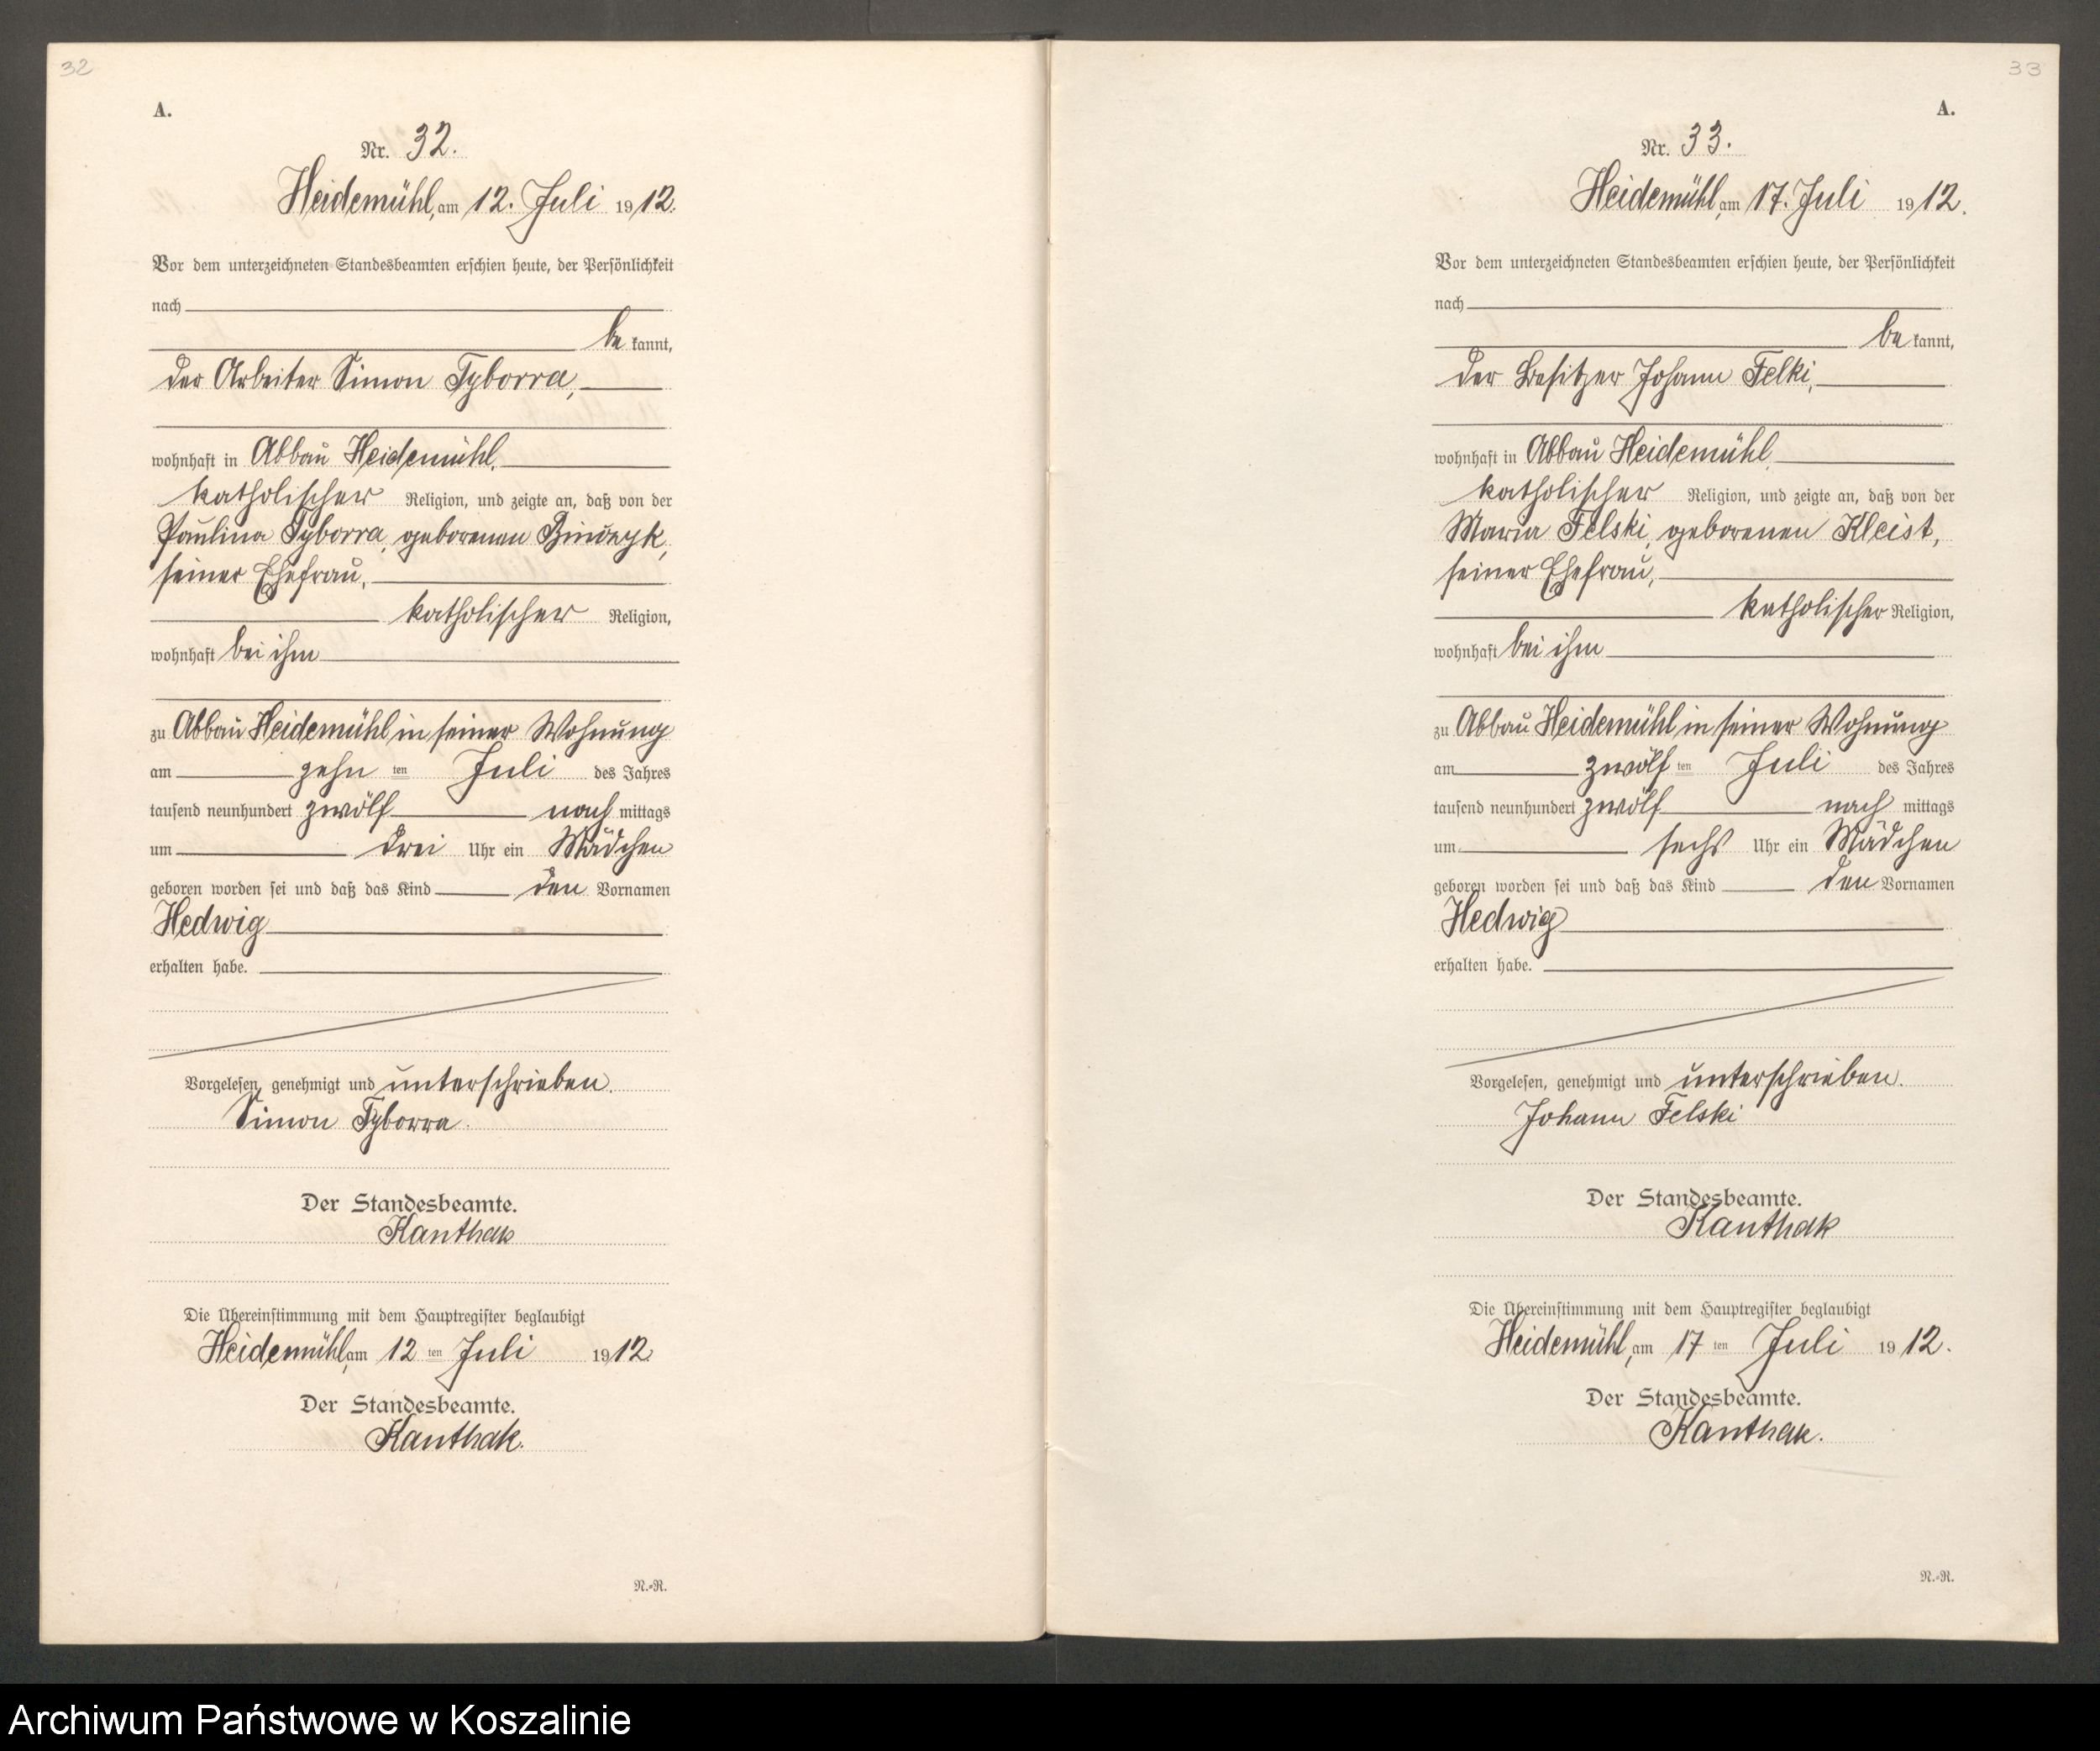 32
A.
Nr. 32.
Heidemühl, am 12. Juli 1912.
Vor dem unterzeichneten Standesbeamten erschien heute, der Persönlichkeit
nach
be kannt,
der Arbeiter Simon Tyborra,
wohnhaft in Abbau Heidemühl,
katholischer Religion, und zeigte an, daß von der
Paulina Tyborra, geborenen
seiner Ehefrau,
katholischer Religion,
wohnhaft bei ihm
zu Abbau Heidemühl, in seiner Wohnung
am zehn ten Juli des Jahres
tausend neunhundert zwölf nach mittags
um drei Uhr ein Mädchen
geboren worden sei und daß das Kind den Vornamen
Hedwig
erhalten habe.
Vorgelesen, genehmigt und unterschrieben.
Simon Tyborra.
Der Standesbeamte.
Kanthak
Die Übereinstimmung mit dem Hauptregister beglaubigt
Heidemühl, am 12 ten Juli 1912.
Der Standesbeamte.
Kanthak.
N.-R.
33
A.
Nr. 33.
Heidemühl, am 17. Juli 1912.
Vor dem unterzeichneten Standesbeamten erschien heute, der Persönlichkeit
nach
be kannt,
der Besitzer Johann Felki,
wohnhaft in Abbau Heidemühl,
katholischer Religion, und zeigte an, daß von der
Maria Felski, geborenen Kleist,
seiner Ehefrau,
katholischer Religion,
wohnhaft bei ihm
zu Abbau Heidemühl, in seiner Wohnung
am zwölf ten Juli des Jahres
tausend neunhundert zwölf nach mittags
um sechs Uhr ein Mädchen
geboren worden sei und daß das Kind den Vornamen
Hedwig
erhalten habe.
Vorgelesen, genehmigt und unterschrieben.
Johann Felski
Der Standesbeamte.
Kanthak
Die Übereinstimmung mit dem Hauptregister beglaubigt
Heidemühl, am 17 ten Juli 1912.
Der Standesbeamte.
Kanthak.
N.-R.
Archiwum Państwowe w Koszalinie